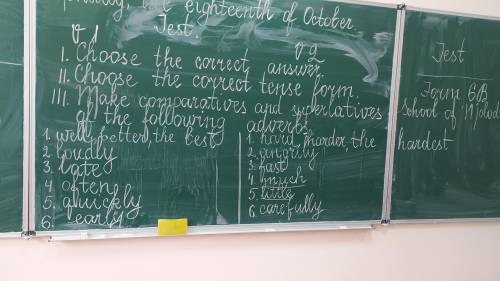 the eighteenth of October
Test.
V 1 V 2
I. Choose the correct answer
II. Choose the correct tense form.
III. Make comparatives and superlatives
of the following adverbs
1. well, better, the best
2. loudly
3. late
4. often
5. quickly
6. early
1. hard, harder, the hardest
2. angrily
3. fast
4. much
5. little
6. carefully
Test
Form 6B
School of